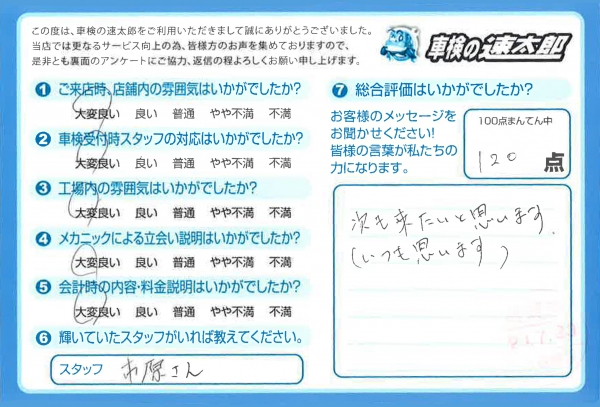 この度は、車検の速太郎をご利用いただきまして誠にありがとうございました。
当店では更なるサービス向上の為、皆様方のお声を集めておりますので、
是非とも裏面のアンケートにご協力、返信の程よろしくお願い申し上げます。
車検の速太郎
1 ご来店時、店舗内の雰囲気はいかがでしたか?
大変良い 良い 普通 やや不満 不満
2 車検受付時スタッフの対応はいかがでしたか?
大変良い 良い 普通 やや不満 不満
3 工場内の雰囲気はいかがでしたか?
大変良い 良い 普通 やや不満 不満
4 メカニックによる立会い説明はいかがでしたか?
大変良い 良い 普通 やや不満 不満
5 会計時の内容・料金説明はいかがでしたか?
大変良い 良い 普通 やや不満 不満
6 輝いていたスタッフがいれば教えてください。
スタッフ 市原さん
7 総合評価はいかがでしたか?
お客様のメッセージを
お聞かせください!
皆様の言葉が私たちの
力になります。
100点まんてん中
120 点
次も来たいと思います.
(いつも思います)